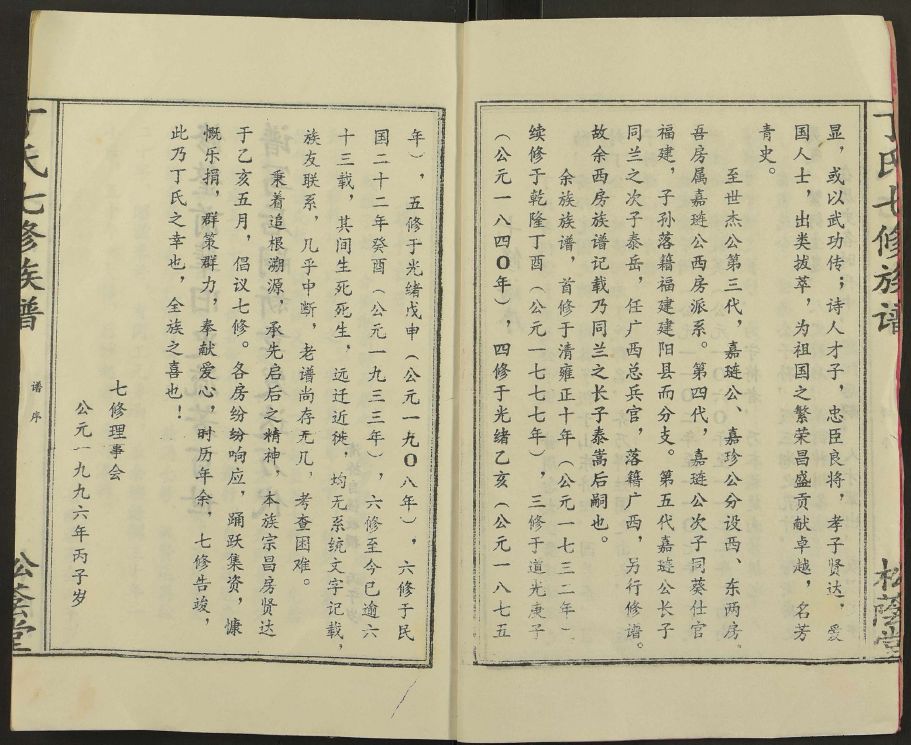 丁氏七修族谱
松荫堂
显，或以武功传；诗人才子，忠臣良将，孝子贤达，爱
国人士，出类拔萃，为祖国之繁荣昌盛贡献卓越，名芳
青史。
至世杰公第三代，嘉琏公、嘉珍公分设西、东两房。
吾房属嘉琏公西房派系。第四代，嘉琏公次子同葵仕官
福建，子孙落籍福建建阳县而分支。第五代嘉琏公长子
同兰之次子泰岳，任广西总兵官，落籍广西，另行修谱。
故余西房族谱记载乃同兰之长子泰嵩后嗣也。
余族族谱，首修于清雍正十年（公元一七三二年）
续修于乾隆丁酉（公元一七七七年），三修于道光庚子
（公元一八四〇年），四修于光绪乙亥（公元一八七五
年），五修于光绪戊申（公元一九〇八年），六修于民
国二十二年癸酉（公元一九三三年），六修至今已逾六
十三载，其间生死死生，远迁近徙，均无系统文字记载，
族友联系，几乎中断，老谱尚存无几，考查困难。
秉着追根溯源，承先启后之精神，本族宗昌房贤达
于乙亥五月，倡议七修。各房纷纷响应，踊跃集资，慷
慨乐捐，群策群力，奉献爱心，时历年余，七修告竣，
此乃丁氏之幸也，全族之喜也！
七修理事会
公元一九九六年丙子岁
丁氏七修族谱
谱序
松荫堂